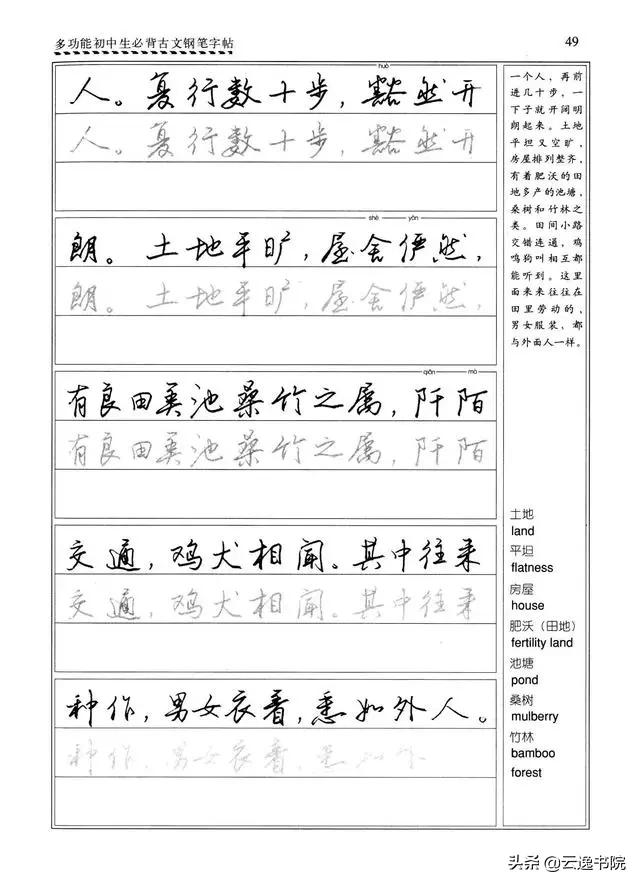 多功能初中生必背古文钢笔字帖
49
huò
人。复行数十步，豁然开
人。复行数十步，豁然开
shè yǎn
朗。土地平旷，屋舍俨然，
朗。土地平旷，屋舍俨然，
qiān mò
有良田美池桑竹之属，阡陌
有良田美池桑竹之属，阡陌
交通，鸡犬相闻。其中往来
交通，鸡犬相闻。其中往来
种作，男女衣着，悉如外人。
种作，男女衣着，悉如外
一个人，再前
进几十步，一
下子就开阔明
朗起来。土地
平坦又空旷，
房屋排列整齐，
有着肥沃的田
地多产的池塘，
桑树和竹林之
类。田间小路
交错连通，鸡
鸣狗叫相互都
能听到。这里
面来来往往在
田里劳动的，
男女服装，都
与外面人一样。
土地
land
平坦
flatness
房屋
house
肥沃（田地）
fertility land
池塘
pond
桑树
mulberry
竹林
bamboo
forest
头条@云逸书院